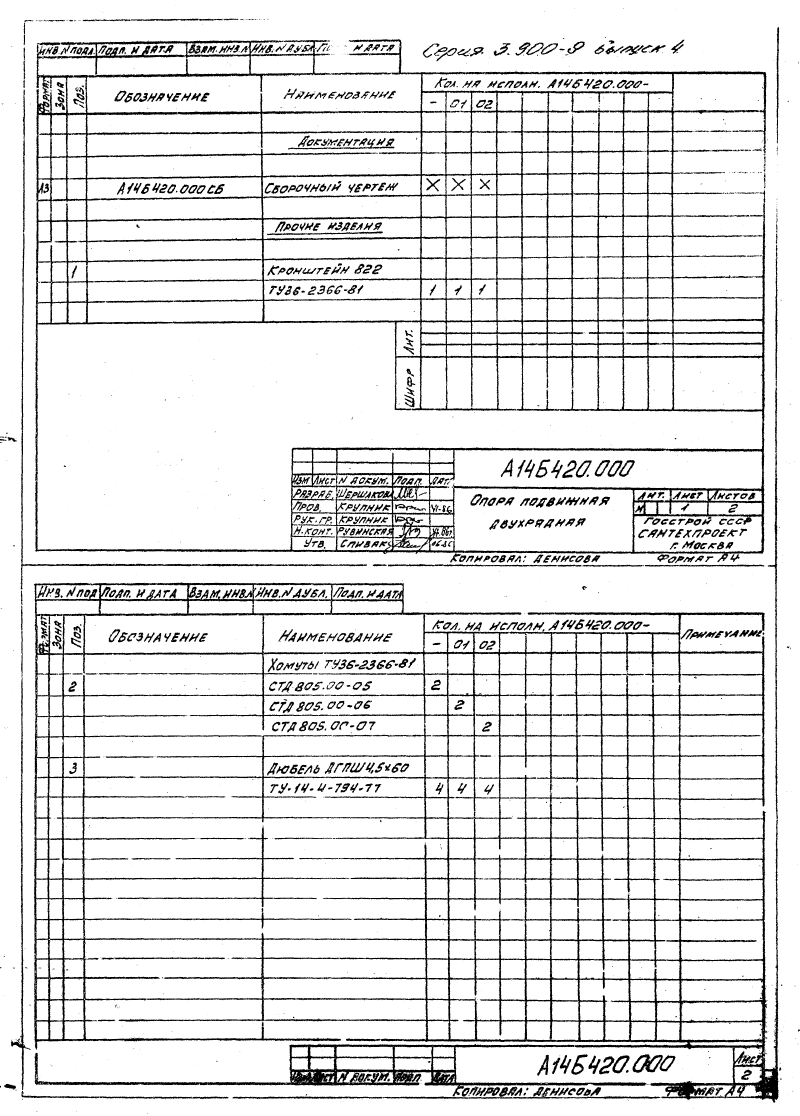 Серия 3.900-9 выпуск 4
ИНВ.N ПОДЛ. ПОДП. И ДАТА ВЗАМ. ИНВ.N ИНВ.N ДУБЛ. И ДАТА
ФОРМАТ ЗОНА ПОЗ. ОБОЗНАЧЕНИЕ НАИМЕНОВАНИЕ КОЛ. НА ИСПОЛН. А14Б420.000-
- 01 02
ДОКУМЕНТАЦИЯ
А3 А14Б420.000 СБ СБОРОЧНЫЙ ЧЕРТЕЖ X X X
ПРОЧИЕ ИЗДЕЛИЯ
1 КРОНШТЕЙН 822
ТУ36-2366-81 1 1 1
ЛИТ.
ШИФР
А14Б420.000
ИЗМ ЛИСТ N ДОКУМ. ПОДП. ДАТ.
РАЗРАБ. ШЕРШАКОВА
ПРОВ. КРУПНИК VI-86
РУК. ГР. КРУПНИК
Н.КОНТ. РУВИНСКАЯ
УТВ. СПИВАК
ОПОРА ПОДВИЖНАЯ
ДВУХРЯДНАЯ
ЛИТ. ЛИСТ ЛИСТОВ
И 1 2
ГОССТРОЙ СССР
САНТЕХПРОЕКТ
Г. МОСКВА
КОПИРОВАЛ: ДЕНИСОВА ФОРМАТ А4
ИНВ. N ПОД ПОДП. И ДАТА ВЗАМ. ИНВ.N ИНВ.N ДУБЛ. ПОДП. И ДАТА
ФОРМАТ ЗОНА ПОЗ. ОБОЗНАЧЕНИЕ НАИМЕНОВАНИЕ КОЛ. НА ИСПОЛН. А14Б420.000- ПРИМЕЧАНИЕ
- 01 02
ХОМУТЫ ТУ36-2366-81
2 СТД 805.00-05 2
СТД 805.00-06 2
СТД 805.00-07 2
3 ДЮБЕЛЬ ДГПШ 4,5×60
ТУ-14-4-794-77 4 4 4
ИЗМ ЛИСТ N ДОКУМ. ПОДП. ДАТА
А14Б420.000
ЛИСТ
2
КОПИРОВАЛ: ДЕНИСОВА ФОРМАТ А4